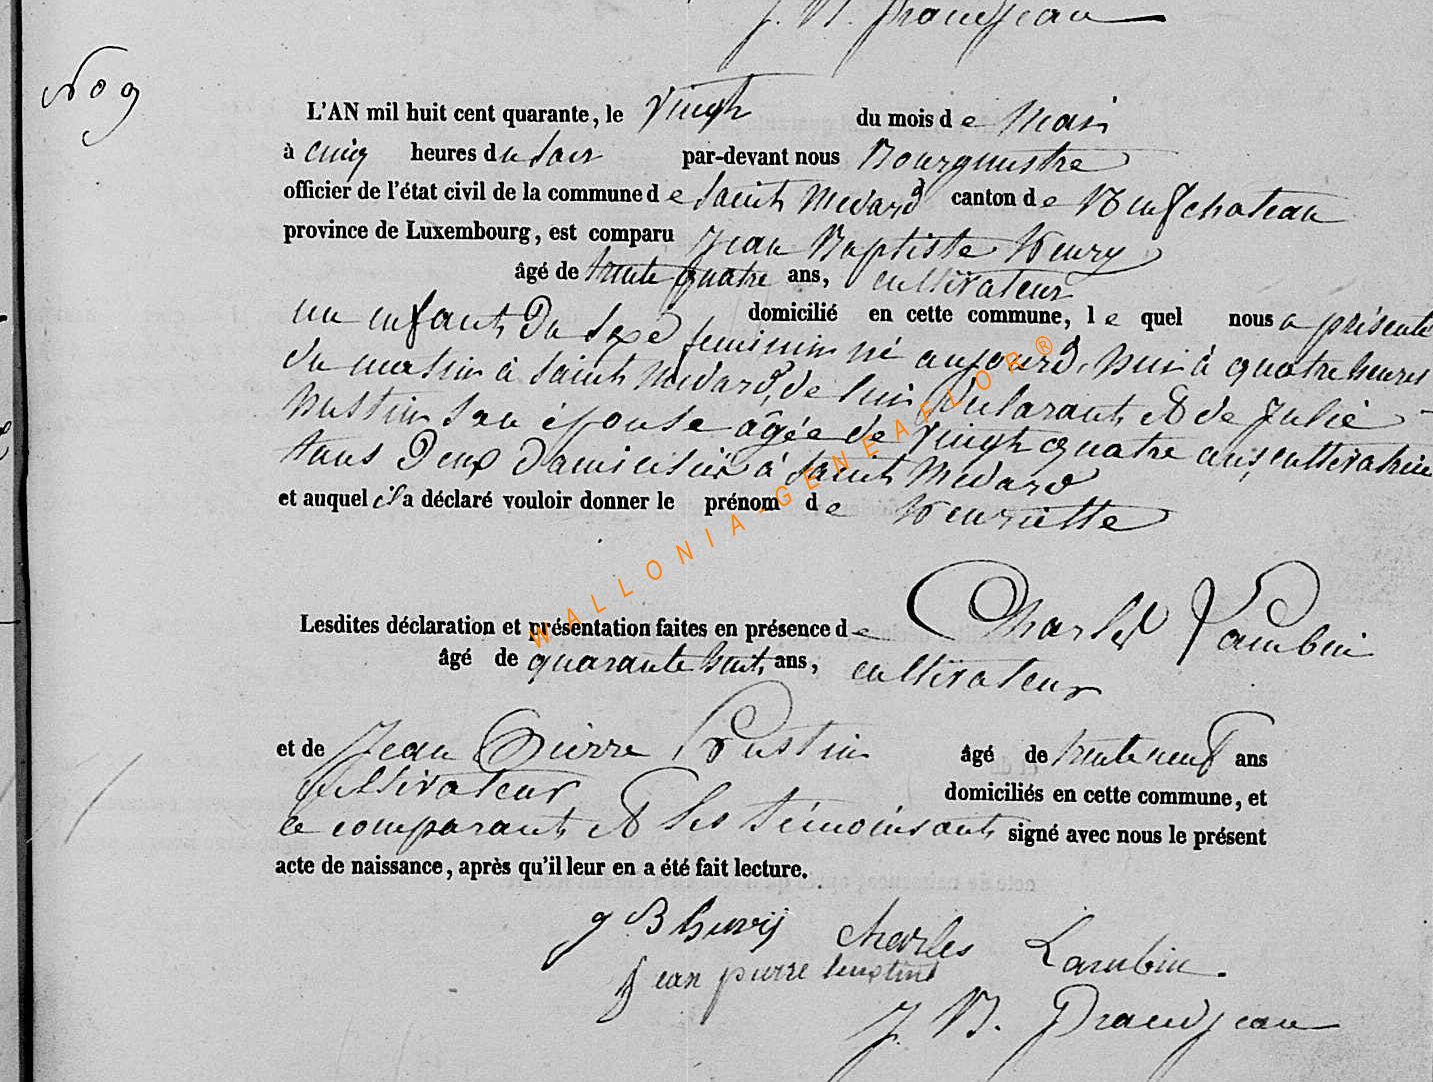 J. B. Grandjean
No 9
L'AN mil huit cent quarante, le vingt du mois de Mai
à cinq heures du soir par-devant nous Bourgmestre
officier de l'état civil de la commune de Saint Medard canton de Neufchateau
province de Luxembourg, est comparu Jean Baptiste Henry
âgé de trente quatre ans, cultivateur
domicilié en cette commune, le quel nous a présenté
un enfant du sexe feminin né aujourd'hui à quatre heures
du matin à Saint Medard, de lui déclarant et de Julie
Hustin son épouse agée de vingt quatre ans cultivatrice
tous deux domiciliés à Saint Medard
et auquel il a déclaré vouloir donner le prénom de Henriette
Lesdites déclaration et présentation faites en présence de Charles Lambin
âgé de quarante huit ans, cultivateur
et de Jean Pierre Hustin âgé de trente neuf ans
cultivateur domiciliés en cette commune, et
le comparant et les témoins ont signé avec nous le présent
acte de naissance, après qu'il leur en a été fait lecture.
J B henry Charles Lambin.
jean pierre hustin
J. B. Grandjean
WALLONIA-GENEAFLOR®